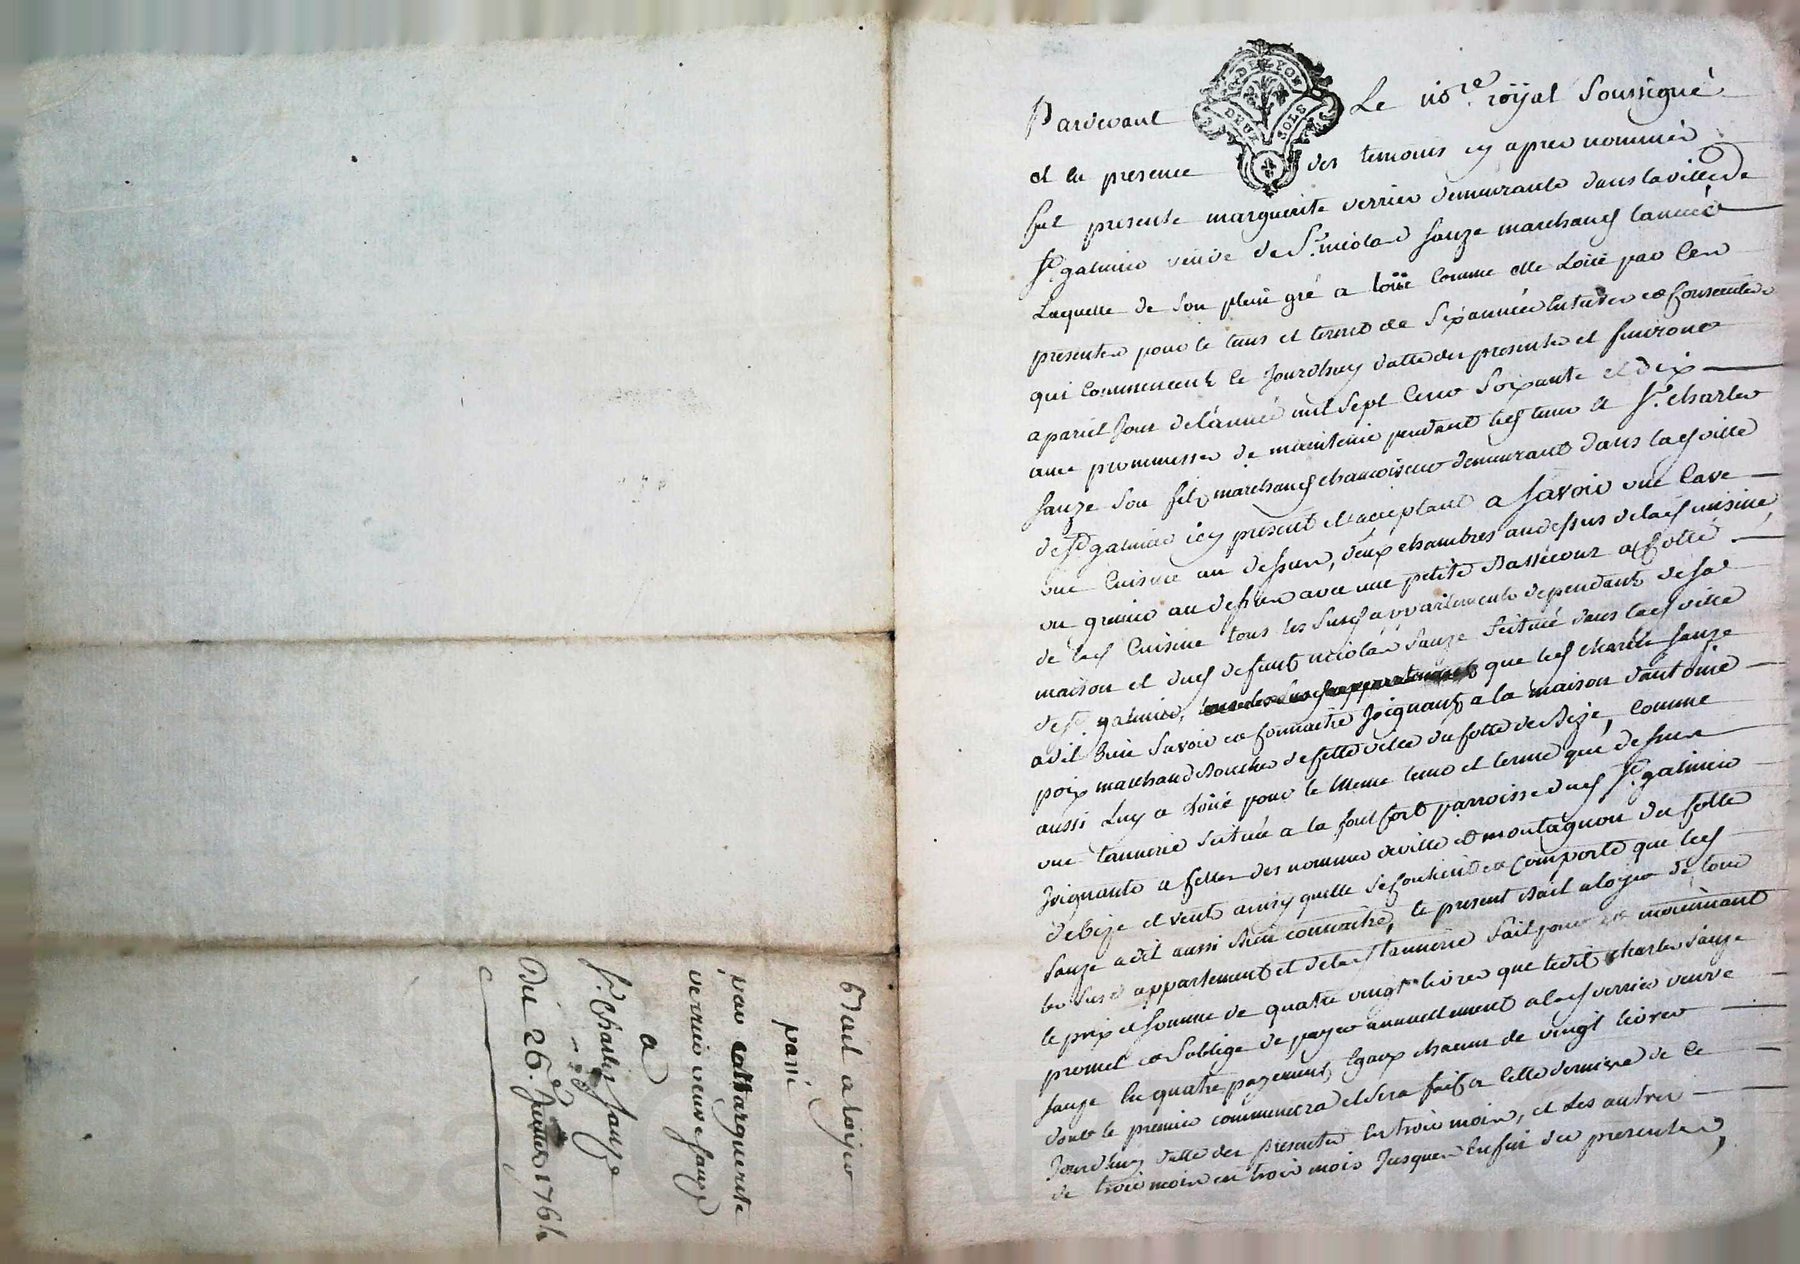 Pardevant Le no.re röyal soussigné
G. DE LYON
DEUX SOLS
et en presence des temoins cy apres nommés
fut presente marguerite verrier demeurante dans la ville de
st galmier veuve de Sr. nicolas sauze marchand tanneur
Laquelle de son plein gré a loüé comme elle Loüe par ces
presentes pour le tems et terme de six années entieres et consecutives
qui commencent ce jourdhuy datte des presentes et finiront
a pareil jour de l'année mil sept cens soixante et dix
avec prommesse de maintenir pendant led tems a sr. charles
sauze son fils marchand chamoiseur demeurant dans lad ville
de st galmier icy present et acceptant a savoir une cave
une cuisine au dessus, deux chambres au dessus de lad cuisine,
un grenier au dessus avec une petite bassecour a cotté
de lad cuisine tous les susd appartements dependant de sa
maison et dud defunt nicolas sauze scitué dans lad ville
de st. galmier, que led charle sauze
a dit bien savoir et connaitre joignant a la maison d'antoine
poix marchand boucher de cette ville du cotté de bize, comme
aussi Luy a Loüé pour le meme tems et terme que dessus
une tannerie scituée a la font fort parroisse dud st. galmier
joignante a celles des nommés deville et montagnon du cotté
de bize et vent ainsy quelle se contient et comporte que led
sauze a dit aussi bien connoitre, le present bail a loyer de tous
les susd appartement et de lad tannerie fait pour et moiennant
le prix et somme de quatre vingt livres que ledit charles sauze
promet et s'oblige de payer annuellement a lad verrier veuve
sauze en quatre payements egaux chacun de vingt livres
dont le premier commencera et sera fait a cette derniere de ce
jourdhuy datte des presentes en trois mois, et les autres
de trois mois en trois mois jusques en fin des presentes,
Bail a loyer
passé
par Marguerite
verrier veuve sauze
a
sr. Charles sauze
Du 26.e Juillet 1764